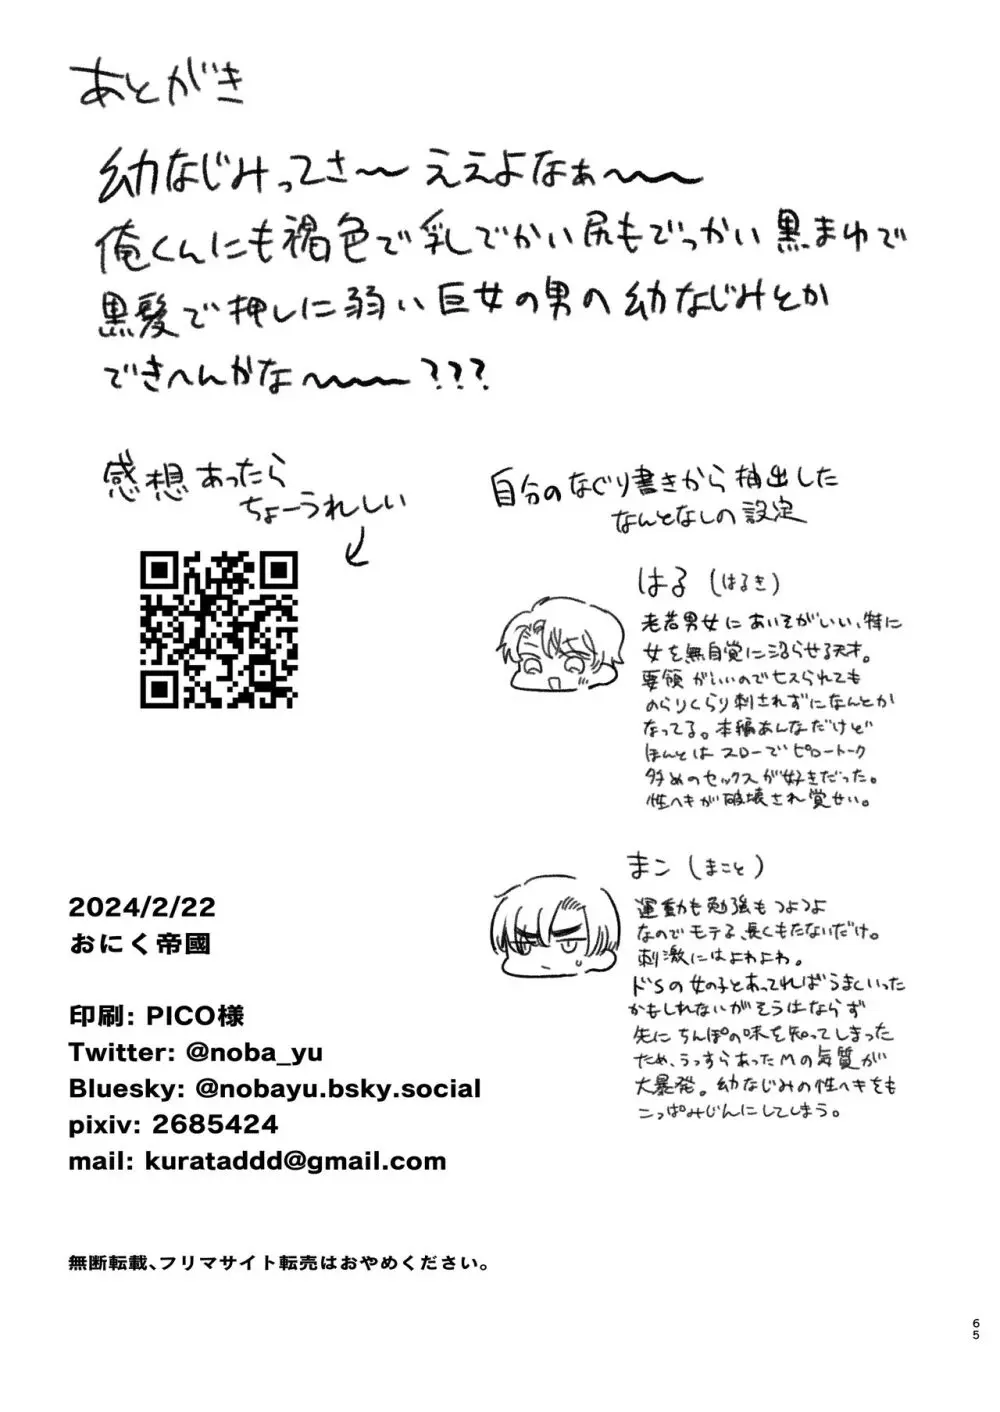 あとがき
幼なじみってさ〜 ええよなぁ〜〜
俺くんにも褐色で乳しでかい尻もでっかい黒まゆで
黒髪で押しに弱い巨女の男の幼なじみとか
できへんかな〜〜〜???
感想あったら
ちょーうれしい
自分のなぐり書きから抽出した
なんとなしの設定
はる(はるき)
老若男女にあいそがいい、特に
女を無自覚に沼らせる天才。
要領がいいのでセスられても
のらりくらり刺されずになんとか
なってる。本編あんなだけど
ほんとはスローでピロートーク
多めのセックスが好きだった。
性ヘキが破壊され覚せい。
まコン(まこと)
運動も勉強もつよつよ
なのでモテる、長くもたないだけ。
刺激にはよわよわ。
ドSの女の子とあってればうまくいった
かもしれないがそうはならず
先にちんぽの味を知ってしまった
ため、うっすらあったMの気質が
大暴発。幼なじみの性ヘキをも
こっぱみじんにしてしまう。
2024/2/22
おにく帝國
印刷: PICO様
Twitter: @noba_yu
Bluesky: @nobayu.bsky.social
pixiv: 2685424
mail: kurataddd@gmail.com
無断転載、フリマサイト転売はおやめください。
65